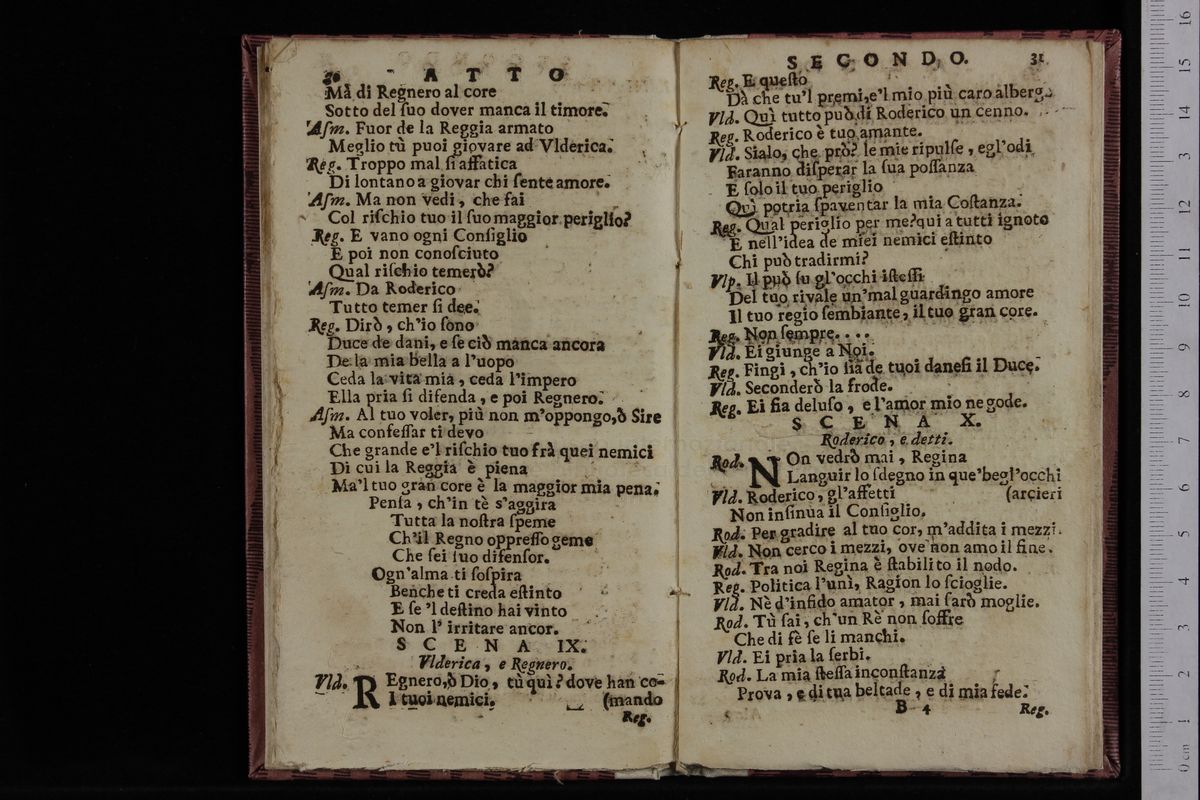 30 ATTO
Mà di Regnero al core
Sotto del ſuo dover manca il timore.
Aſm. Fuor de la Reggia armato
Meglio tù puoi giovare ad Vlderica.
Reg. Troppo mal ſi affatica
Di lontano a giovar chi ſente amore.
Aſm. Ma non vedi, che fai
Col riſchio tuo il ſuo maggior periglio?
Reg. E vano ogni Conſiglio
E poi non conoſciuto
Qual riſchio temerò?
Aſm. Da Roderico
Tutto temer ſi dee.
Reg. Dirò, ch'io ſono
Duce de dani, e ſe ciò manca ancora
De la mia bella a l'uopo
Ceda la vita mia, ceda l'impero
Ella pria ſi difenda, e poi Regnero.
Aſm. Al tuo voler, più non m'oppongo, ò Sire
Ma confeſſar ti devo
Che grande e'l riſchio tuo frà quei nemici
Di cui la Reggia è piena
Ma'l tuo gran core è la maggior mia pena.
Penſa, ch'in tè s'aggira
Tutta la noſtra ſpeme
Ch'il Regno oppreſſo geme
Che ſei ſuo difenſor.
Ogn'alma ti ſoſpira
Benche ti creda eſtinto
E ſe 'l deſtino hai vinto
Non l' irritare ancor.
SCENA IX.
Vlderica, e Regnero.
Vld. REgnero, ò Dio, tù quì? dove han co-
I tuoi nemici. (mando
Reg.
SECONDO. 31
Reg. E queſto
Dà che tu'l premi, e'l mio più caro albergo
Vld. Quì tutto può di Roderico un cenno.
Reg. Roderico è tuo amante.
Vld. Sialo, che prò? le mie ripulſe, egl'odi
Faranno diſperar la ſua poſſanza
E ſolo il tuo periglio
Quì potria ſpaventar la mia Coſtanza.
Reg. Qual periglio per me? qui a tutti ignoto
E nell'idea de miei nemici eſtinto
Chi può tradirmi?
Vlp. Il può ſu gl'occhi iſteſſi
Del tuo rivale un'mal guardingo amore
Il tuo regio ſembiante, il tuo gran core.
Reg. Non ſempre....
Vld. Ei giunge a Noi.
Reg. Fingi, ch'io ſia de tuoi daneſi il Duce.
Vld. Seconderò la frode.
Reg. Ei ſia deluſo, e l'amor mio ne gode.
SCENA X.
Roderico, e detti.
Rod. NOn vedrò mai, Regina
Languir lo ſdegno in que'begl'occhi
Vld. Roderico, gl'affetti (arcieri
Non inſinua il Conſiglio.
Rod. Per gradire al tuo cor, m'addita i mezzi.
Vld. Non cerco i mezzi, ove non amo il fine.
Rod. Tra noi Regina è ſtabilito il nodo.
Reg. Politica l'unì, Ragion lo ſcioglie.
Vld. Nè d'infido amator, mai ſarò moglie.
Rod. Tù ſai, ch'un Rè non ſoffre
Che di fè ſe li manchi.
Vld. Ei pria la ſerbi.
Rod. La mia ſteſſa inconſtanza
Prova, e di tua beltade, e di mia fede.
B 4 Reg.